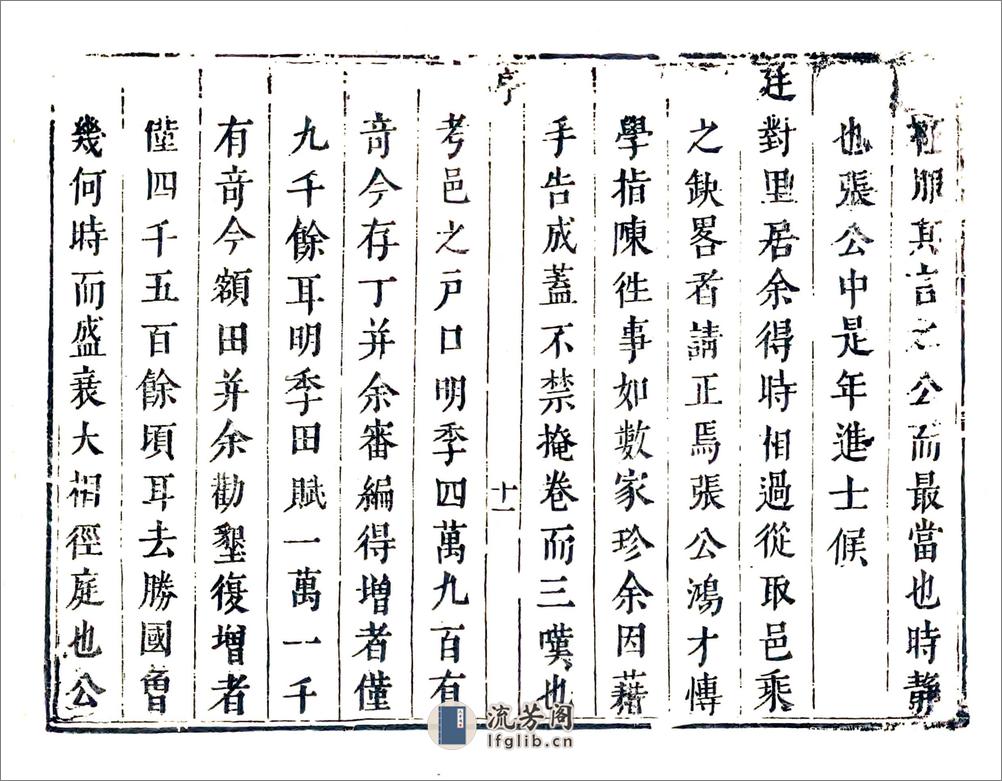 服其言之公而最當也時靜
也張公中是年進士候
廷
對里居余得時相過從取邑乘
之缺畧者請正焉張公鴻才博
學指陳徃事如數家珍余因藉
手告成蓋不禁掩卷而三嘆也
序
十一
考邑之戸口明季四萬九百有
竒今存丁并余審編得增者僅
九千餘耳明季田賦一萬一千
有竒今額田并余勸墾復增者
僅四千五百餘頃耳去勝國曾
幾何時而盛衰大相徑庭也公
流芳阁
lfglib.cn